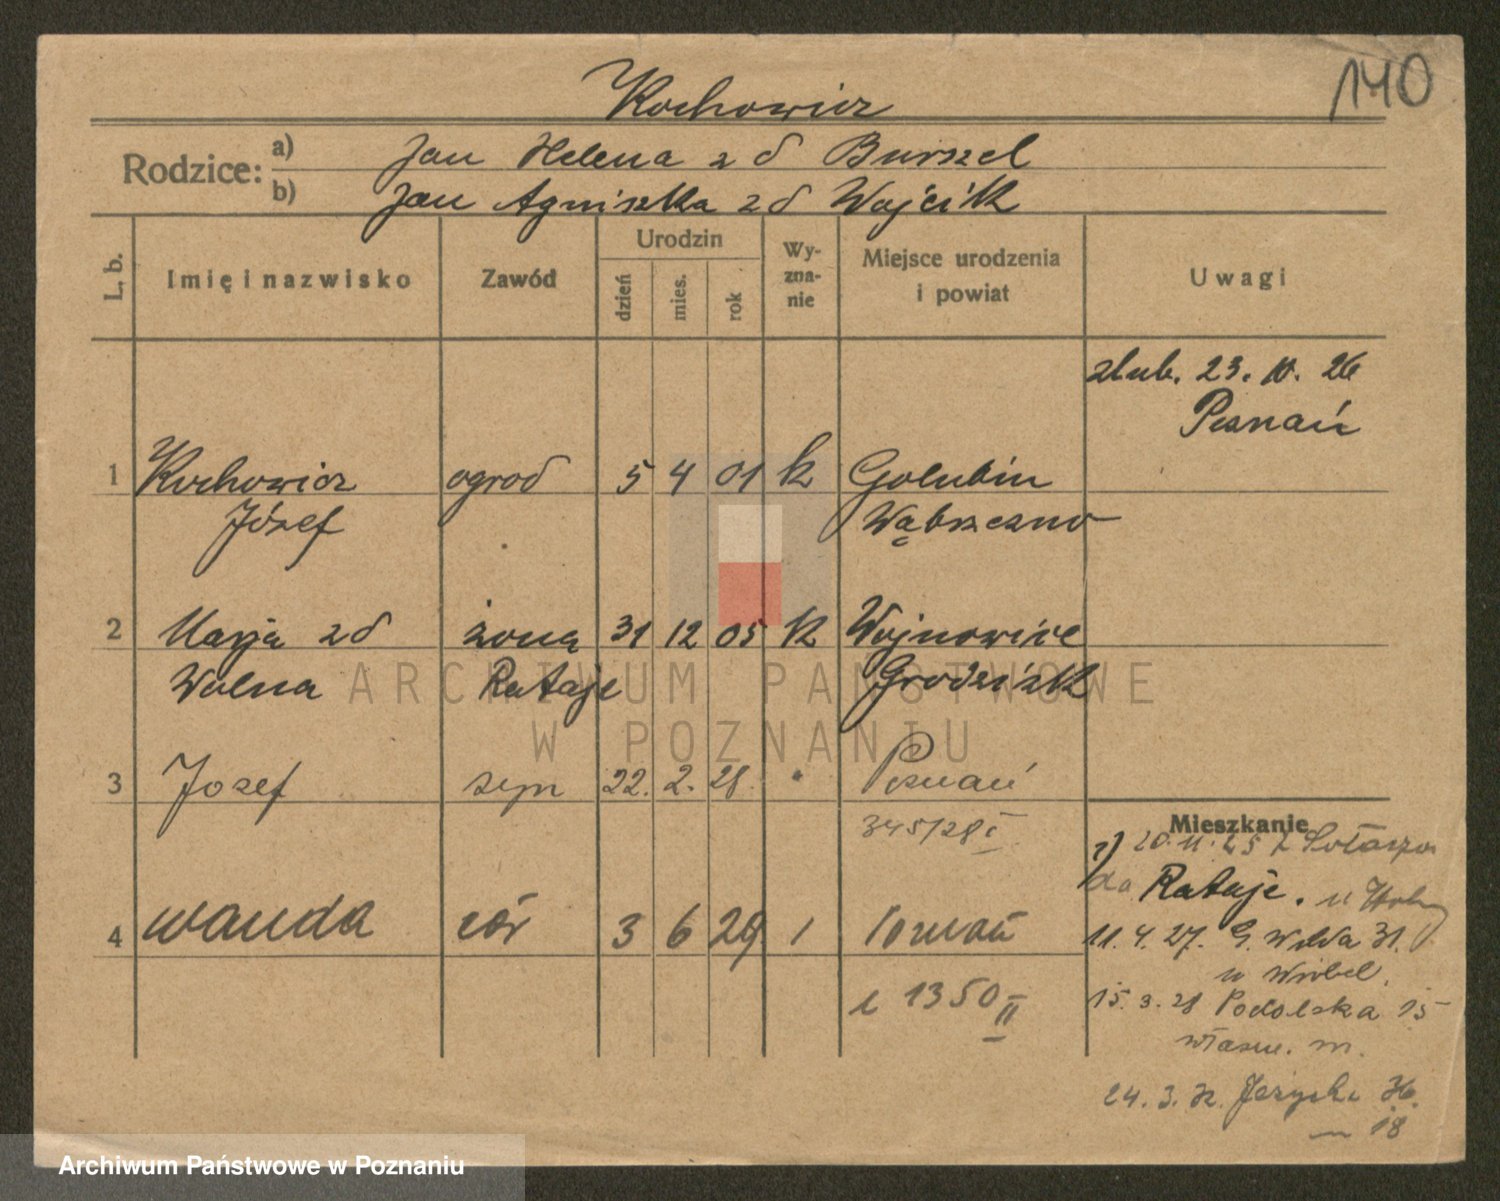 Kochowicz
140
Rodzice: a) Jan Helena z d Burszel
b) Jan Agniszka z d Wojcik
L. b. Imię i nazwisko Zawód Urodzin dzień mies. rok Wy-zna-nie Miejsce urodzenia i powiat Uwagi
ślub. 23. 10. 26
Poznań
1 Kochowicz ogrod 5 4 01 k Golubin
Józef Wąbrzezno
2 Marja zd żona 31 12 05 k Wojnowice
Wolna Rataje Grodzisk
3 Jozef syn 22. 2. 28. Poznań
345/28 I
Mieszkanie
20. 11. 25 z
do Rataje. u
4 Wanda cór 3 6 29 1 Poznań
11. 4. 27. G. Wilda 31.
u Wróbel.
1350 II
15. 3. 28 Podolska 15
własn. m.
24. 3. 32.
m 18
ARCHIWUM PAŃSTWOWE
W POZNANIU
Archiwum Państwowe w Poznaniu